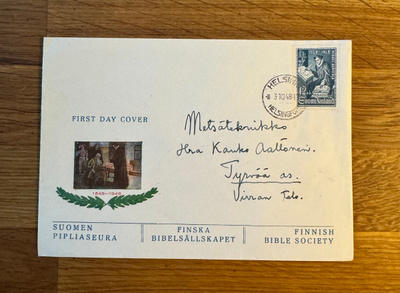 HELSINKI
3.10.48
HELSINGFORS
FIRST DAY COVER
Metsäteknikko
Hra Kauko Aaltonen.
Tyrvää as.
1548-1948
SUOMEN
PIPLIASEURA
FINSKA
BIBELSÄLLSKAPET
FINNISH
BIBLE SOCIETY